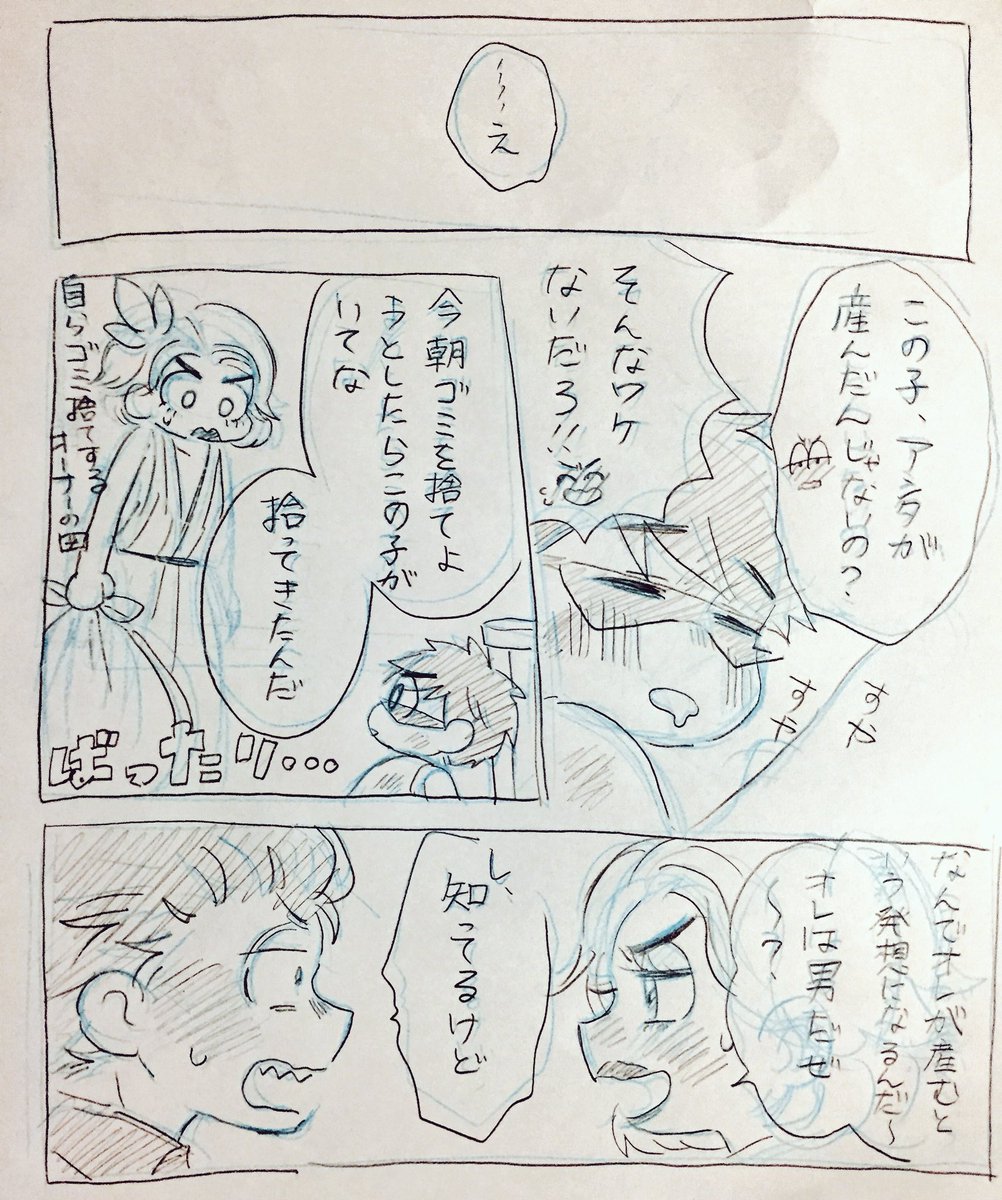 ・・・え
この子、アンタが
産んだんじゃないの?
そんなワケ
ないだろ!!
すや
すや
今朝ゴミを捨てよ
うとしたらこの子が
いてな
拾ってきたんだ
自らゴミ捨てする
オーナーの図
ばったり...
なんでオレが産むと
いう発想になるんだ~
オレは男だぜ
~?
し、
知ってるけど